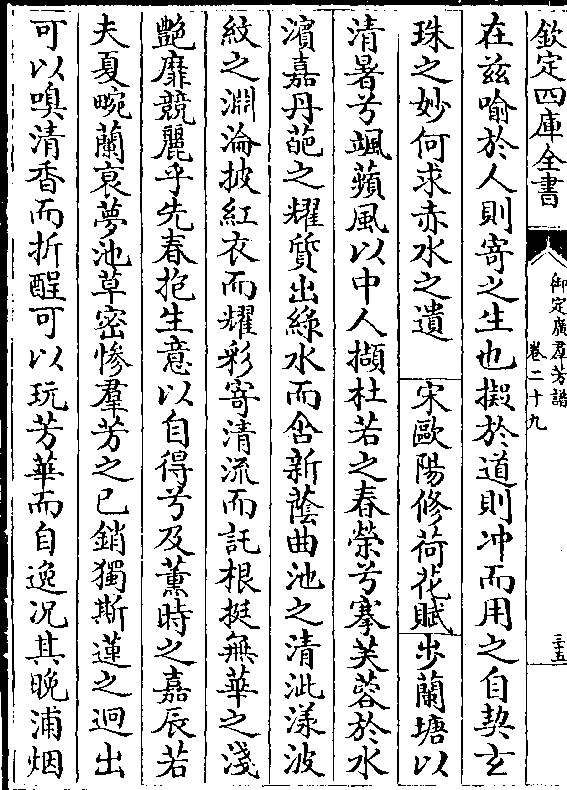 欽定四庫全書
御定廣羣芳譜
卷二十九
三十五
在兹喻於人則寄之生也擬於道則冲而用之自契玄
珠之妙何求赤水之遺 宋歐陽修荷花賦 步蘭塘以
清暑兮颯蘋風以中人擷杜若之春榮兮搴芙蓉於水
濵嘉丹葩之耀質出緑水而含新蔭曲池之清泚漾波
紋之淵淪披紅衣而耀彩寄清流而託根挺無華之淺
艷靡競麗乎先春抱生意以自得兮及薰時之嘉辰若
夫夏畹蘭衰夢池草密惨羣芳之已銷獨斯蓮之迥出
可以嗅清香而折酲可以玩芳華而自逸况其晚浦烟